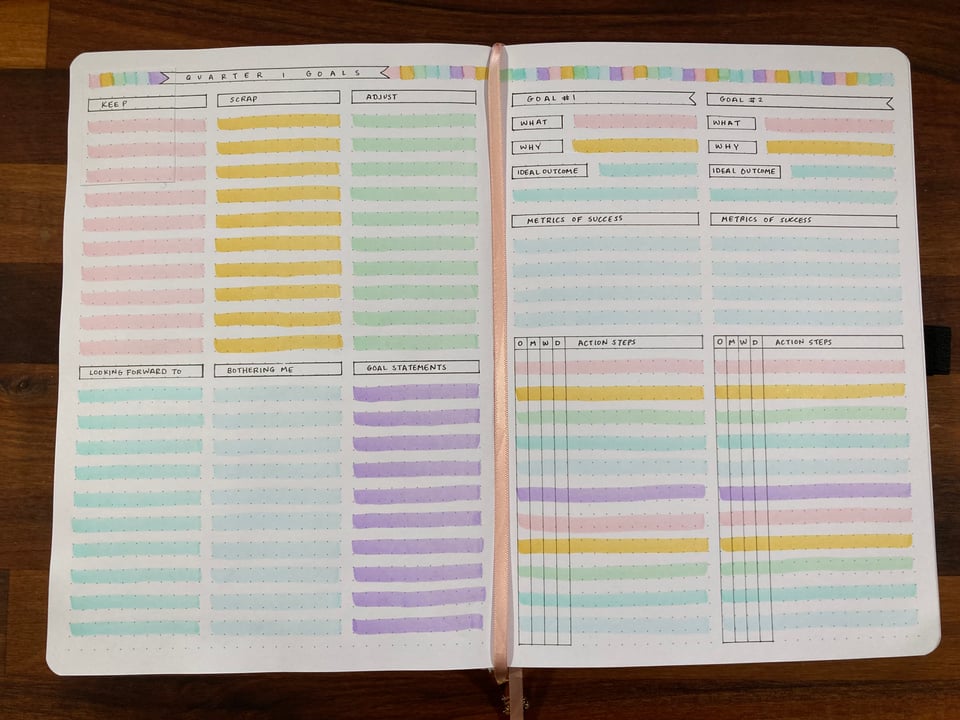 QUARTER 1 GOALS
KEEP
SCRAP
ADJUST
LOOKING FORWARD TO
BOTHERING ME
GOAL STATEMENTS
GOAL #1
WHAT
WHY
IDEAL OUTCOME
METRICS OF SUCCESS
O M W D ACTION STEPS
GOAL #2
WHAT
WHY
IDEAL OUTCOME
METRICS OF SUCCESS
O M W D ACTION STEPS